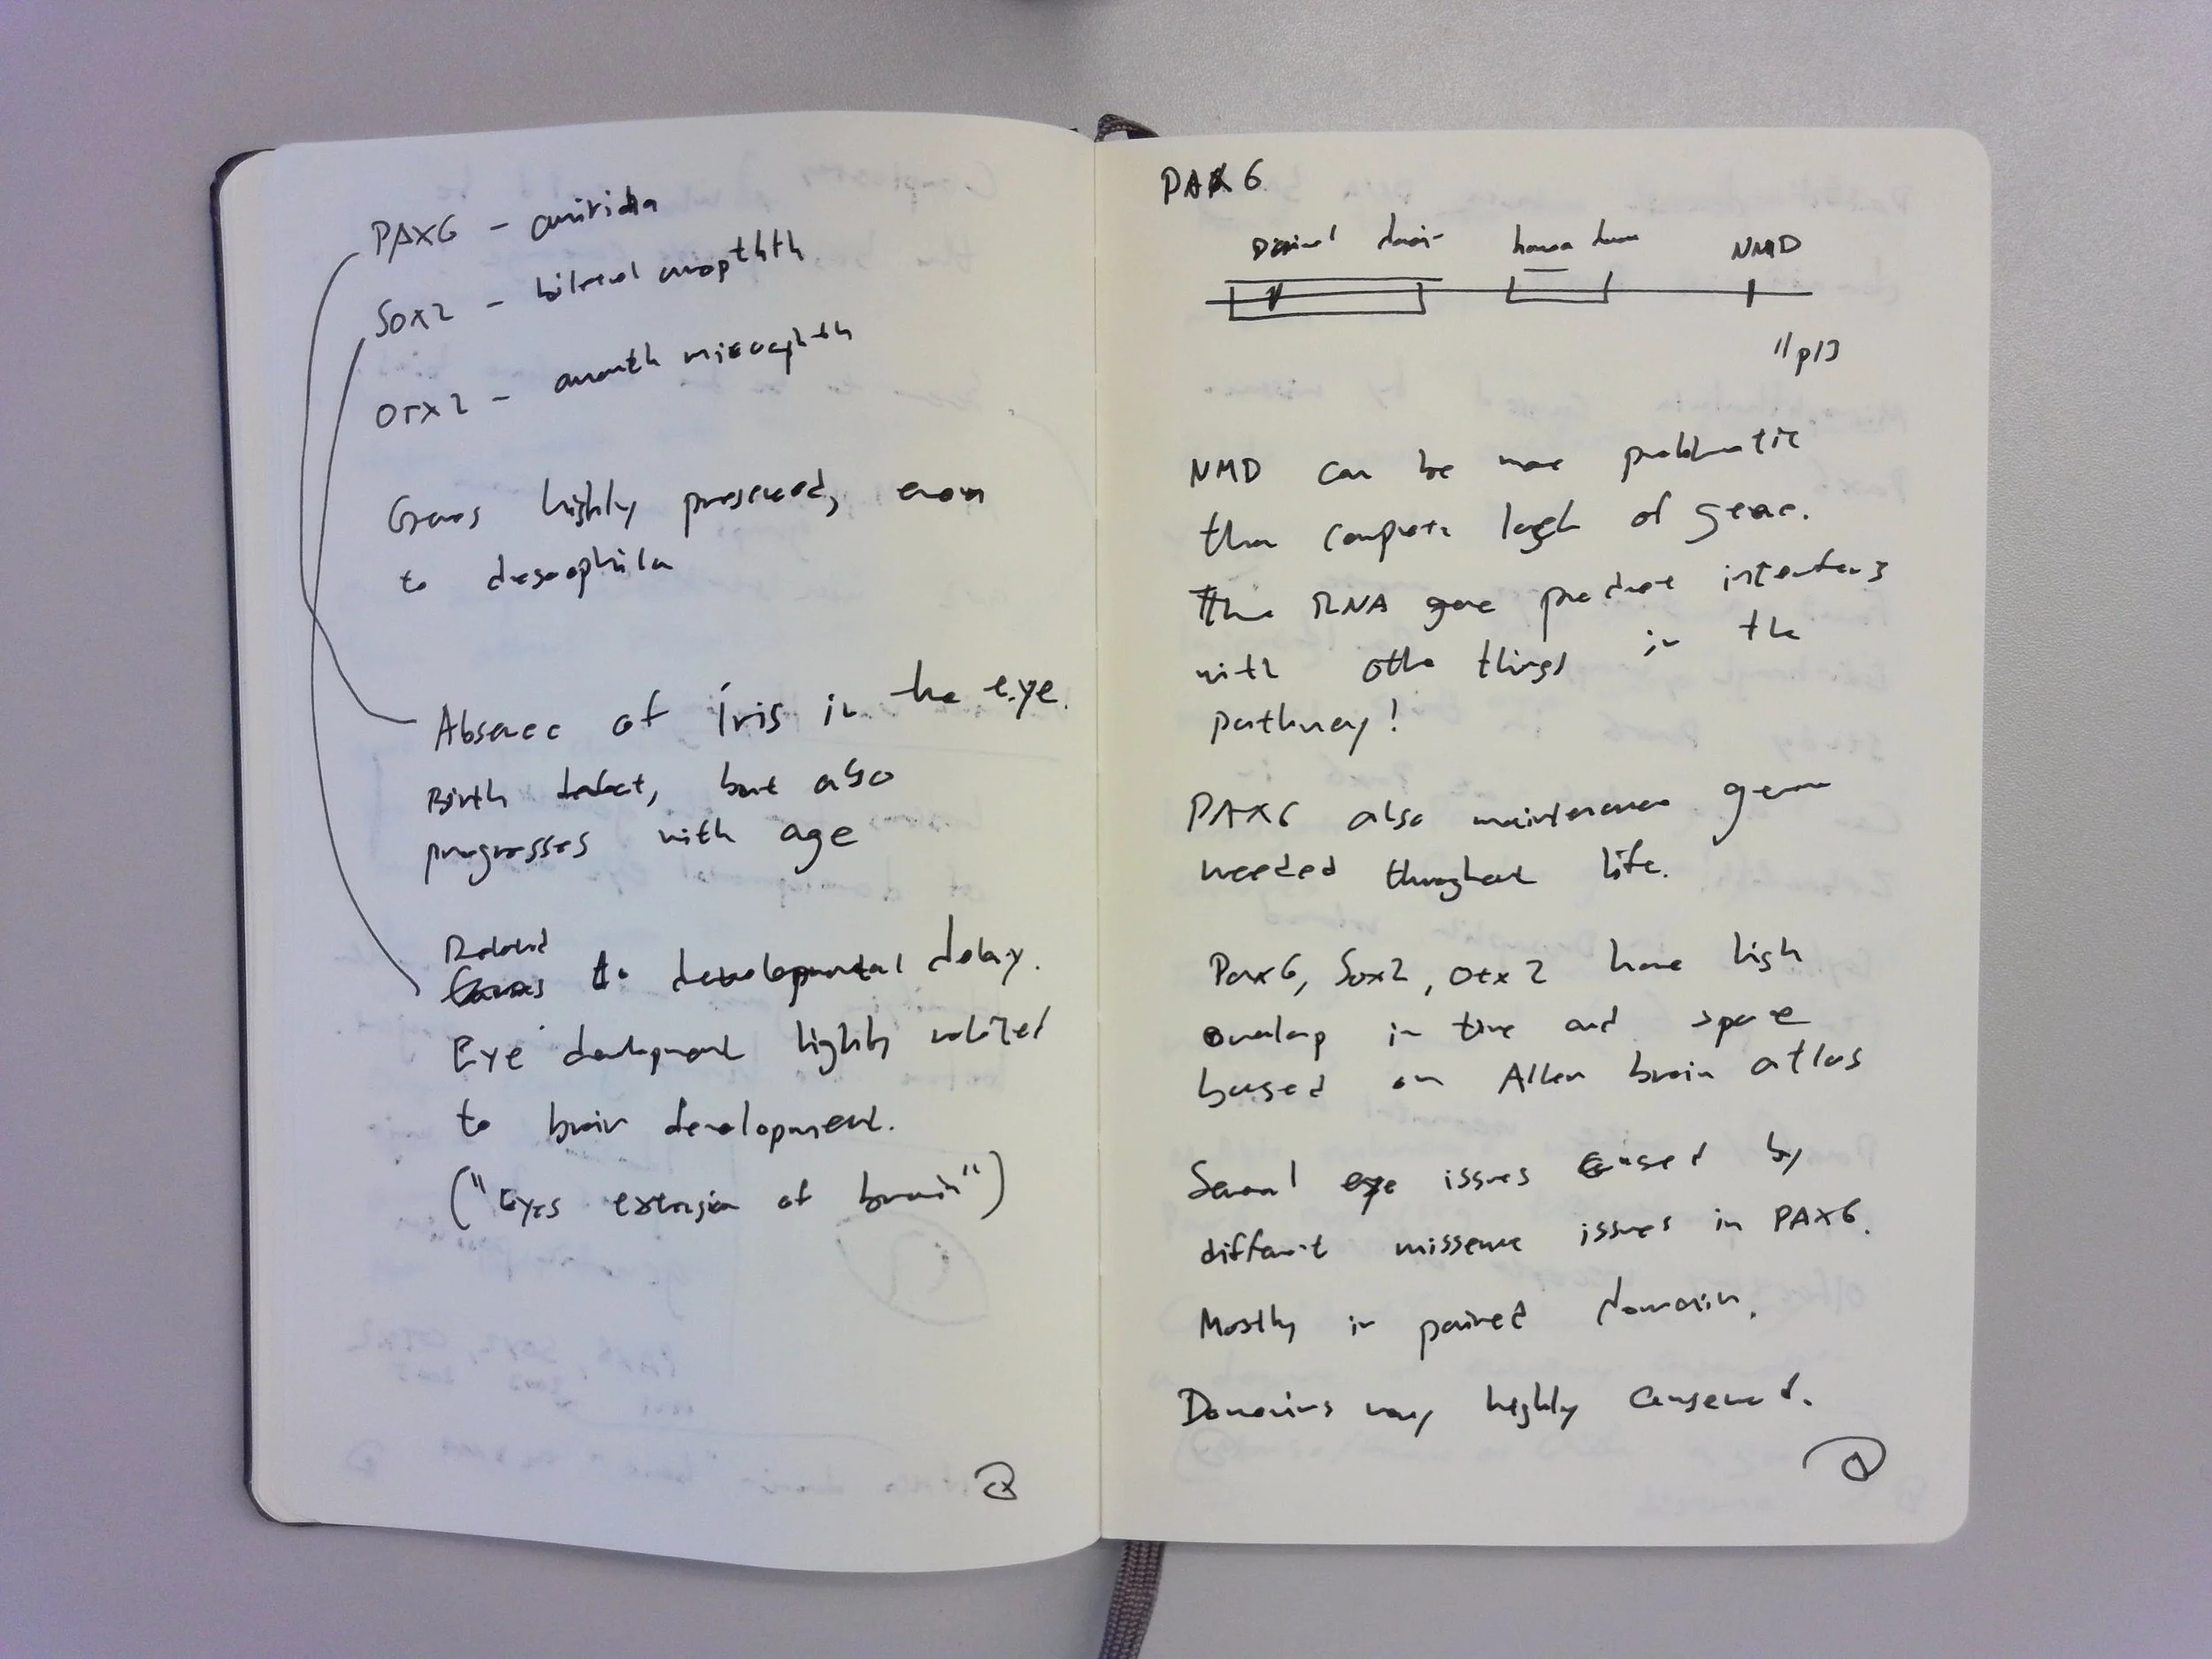 PAX6 - aniridia
Sox2 - bilateral anophthth
OTX2 - anonth microphth
Genes highly preserved, even
to drosophila
Absence of iris in the eye.
Birth defect, but also
progresses with age
Related
to developmental delay.
Eye development highly related
to brain development.
("Eyes extension of brain")
PAX6
domain homeo domain NMD
11p13
NMD can be more problematic
than complete lack of gene.
The RNA gene product interferes
with other things in the
pathway!
PAX6 also maintenance gene
needed throughout life.
Pax6, Sox2, Otx2 have high
overlap in time and space
based on Allen brain atlas
Several eye issues caused by
different missense issues in PAX6.
Mostly in paired domain.
Domains very highly conserved.